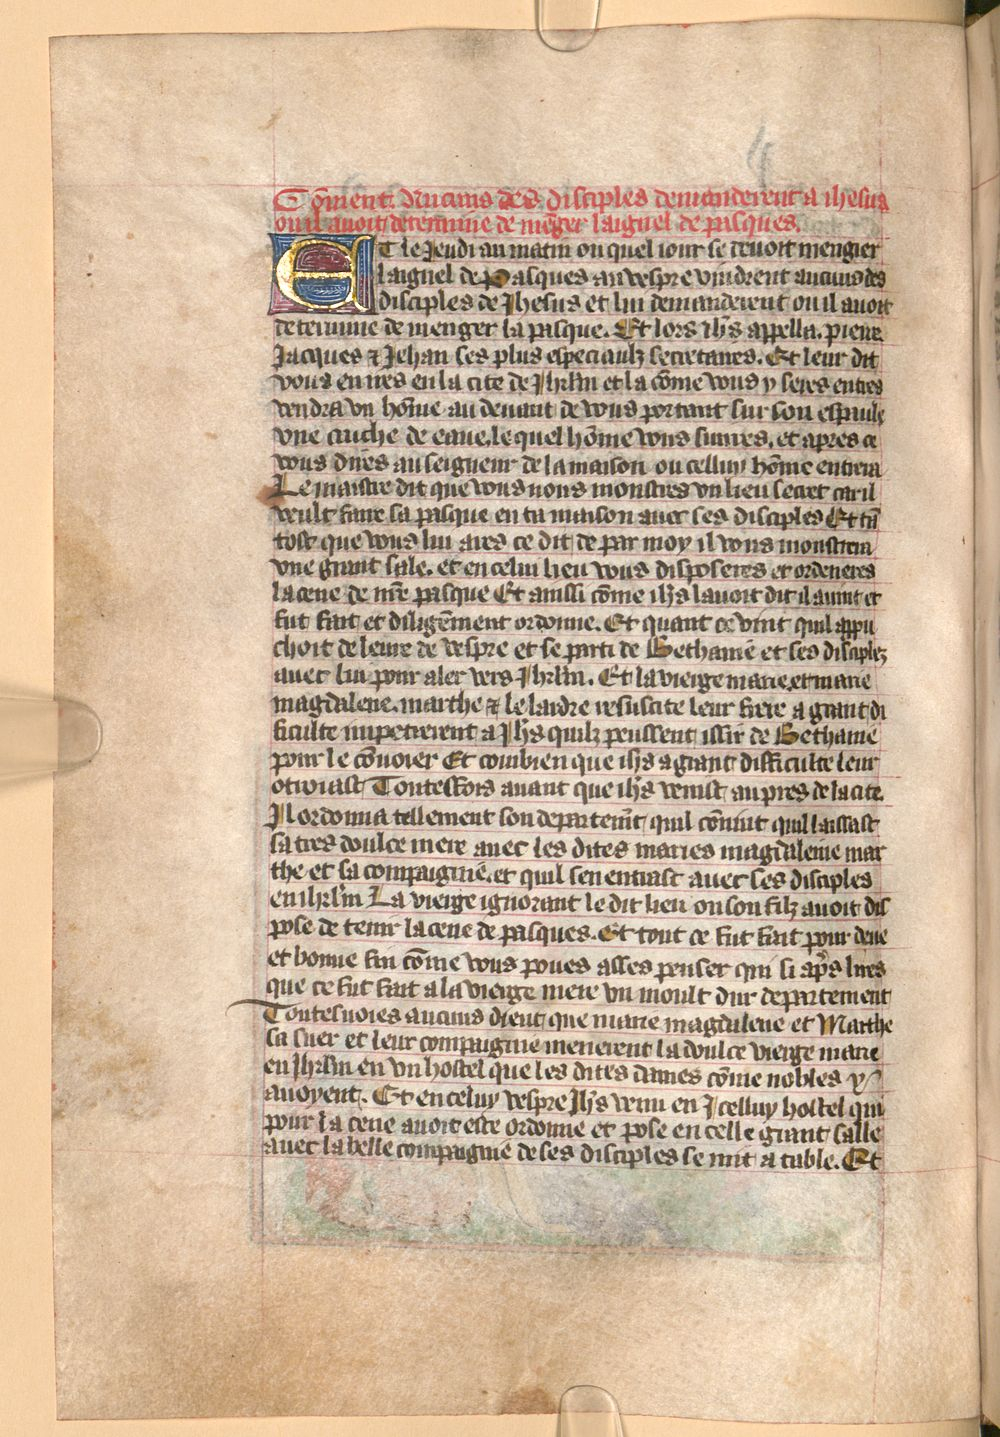 Cōment. Aucuns des disciples demanderent a ihesus
ou il auoit determine de mēger laignel de pasques.
Et le Jeudi au matin ou quel iour se deuoit mengier
laignel de Pasques au vespre vindrent aucuns des
disciples de Jhesus et lui demanderent ou il auoit
determine de menger la pasque. Et lors ihs̄ appella. pierre
Jacques & Jehan ses plus especiaulx secretaires. Et leur dit
vous en ires en la cite de Jhrlm̄ et la cōme vous y seres entres
vendra vn hōme au deuant de vous portant sur son espaule
vne cruche de eaue. le quel hōme vous suiures. et apres ce
vous dires au seigneur de la maison ou celluy hōme entrera
Le maistre dit que vous nous monstres vn lieu secret car il
veult faire sa pasque en ta maison auec ses disciples Et tā
tost que vous lui ares ce dit de par moy il vous monstrera
vne grant sale. et en celui lieu vous disposeres et ordeneres
la cene de nr̄e pasque Et ainssi cōme ihs̄ lauoit dit il auint et
fut fait et diligēment ordonne. Et quant ce vint quil appro
choit de leure de vespre et se parti de Bethanie et ses disciplez
auec lui pour aler vers Jhrlm̄. Et la vierge marie. et marie
magdalene. marthe & le lardre resuscite leur frere a grant di
ficulte impetrerent a Jhs̄ quilz peussent issir de Bethanie
pour le cōuoier Et combien que ihs̄ a grant difficulte leur
otroiast Toutesfois auant que ihs̄ venist au pres de la cite.
Il ordonna tellement son departemt̄ quil cōuint quil laissast
sa tres doulce mere auec les dites maries magdaleine mar
the et sa compaignie. et quil sen entrast auec ses disciples
en ihrlm̄ La vierge ignorant le dit lieu ou son filz auoit dis
pose de tenir la cene de pasques. Et tout ce fut fait pour deue
et bonne fin cōme vous poues asses penser qui si ap̄s lires
que ce fut fait a la vierge mere vn moult dur departement
Toutesuoies aucuns dient que marie magdalene et Marthe
sa suer et leur compaignie menerent la doulce vierge marie
en Jhrlm̄ en vn hostel que les dites dames cōme nobles y
auoyent. Et en celuy vespre Jhs̄ venu en Jcelluy hostel qui
pour la cene auoit este ordonne et pose en celle grant salle
auec la belle compaignie de ses disciples se mit a table. Et